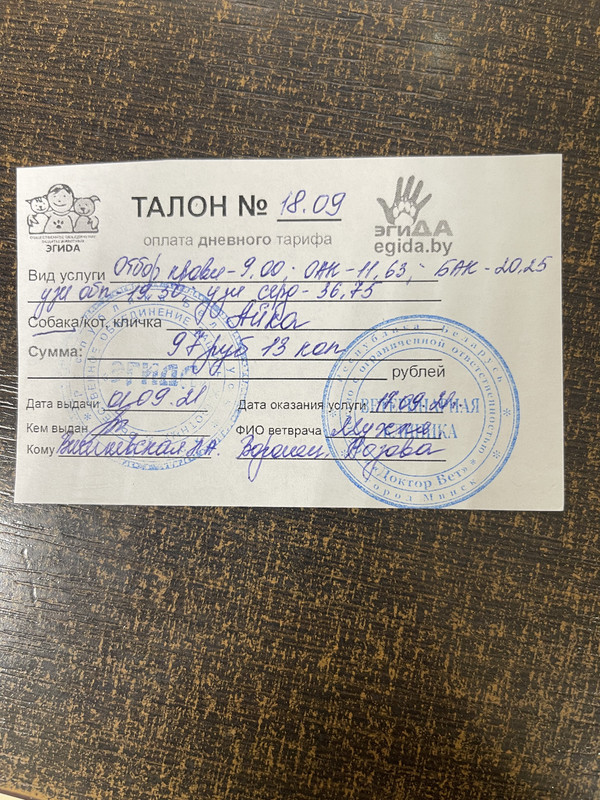 ТАЛОН № 18.09
оплата дневного тарифа
ЭГИДА
эгиДА
egida.by
Вид услуги Отбор крови - 9,00; ОАК - 11,63; БАК - 20,25
узи обп - 19,50 узи серд - 36,75
Собака/кот, кличка Айка
Сумма: 97 руб 13 коп
рублей
Дата выдачи 01.09.21 Дата оказания услуги 18.09.21
Кем выдан ФИО ветврача
Кому Вишневская
Республика Беларусь
с ограниченной ответственностью
ВЕТЕРИНАРНАЯ
КЛИНИКА
«Доктор Вет»
город Минск
ЭГИДА